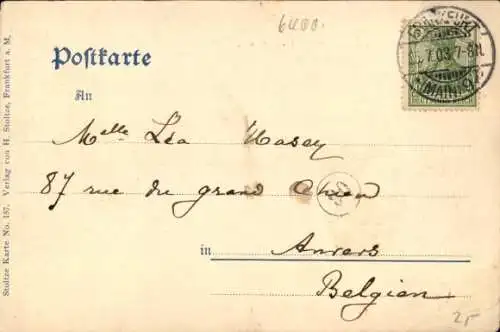 6400.
Postkarte
An
Melle Léa Hasey
87 rue du grand Chien
in
Anvers
Belgien
FRANKFURT
7.03. 7-8N.
(MAIN)
25
Stoltze Karte No. 157. Verlag von H. Stoltze, Frankfurt a. M.